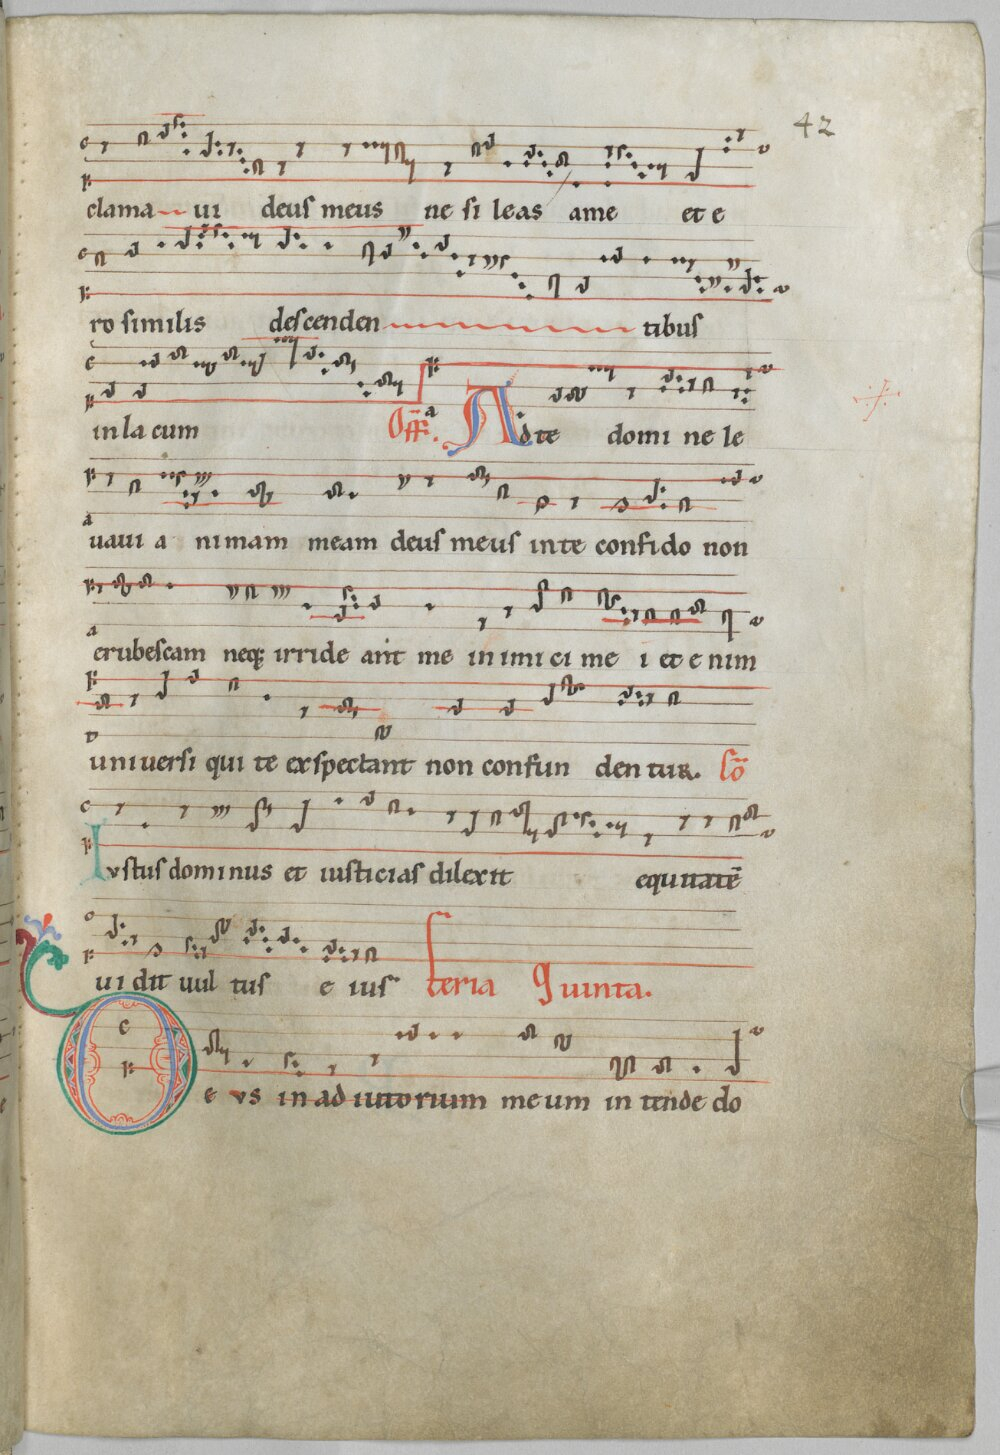 42
clama ui deus meus ne si leas ame et e
ro similis descenden tibus
in la cum Off. Ad te domi ne le
uaui a nimam meam deus meus in te confido non
erubescam neq; irride ant me in imi ci me i et e nim
uniuersi qui te exspectant non confun den tur. Co
Iustus dominus et iusticias dilexit equitatē
uidit uul tus e ius feria Quinta.
De us in ad iutorium meum in tende do